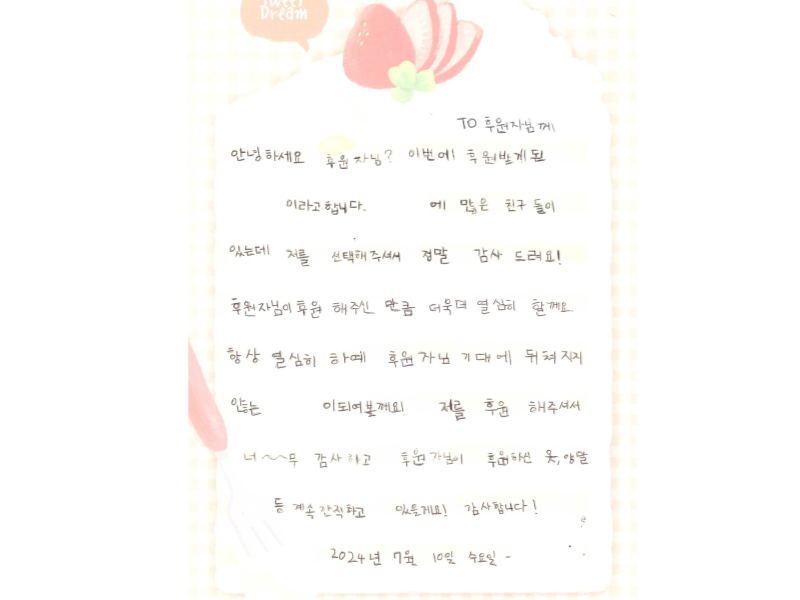 Sweet
Dream
TO 후원자님께
안녕하세요 후원자님? 이번에 후원받게된
이라고합니다. 에 많은 친구들이
있는데 저를 선택해주셔서 정말 감사 드려요!
후원자님이후원 해주신 만큼 더욱더 열심히 할께요
항상 열심히 하여 후원자님 기대에 뒤쳐지지
안는 이되여볼께요! 저를 후원 해주셔서
너~~무 감사하고 후원자님이 후원하신 옷, 양말
등 계속간직하고 있을게요! 감사합니다!
2024년 7월 10일 수요일 -